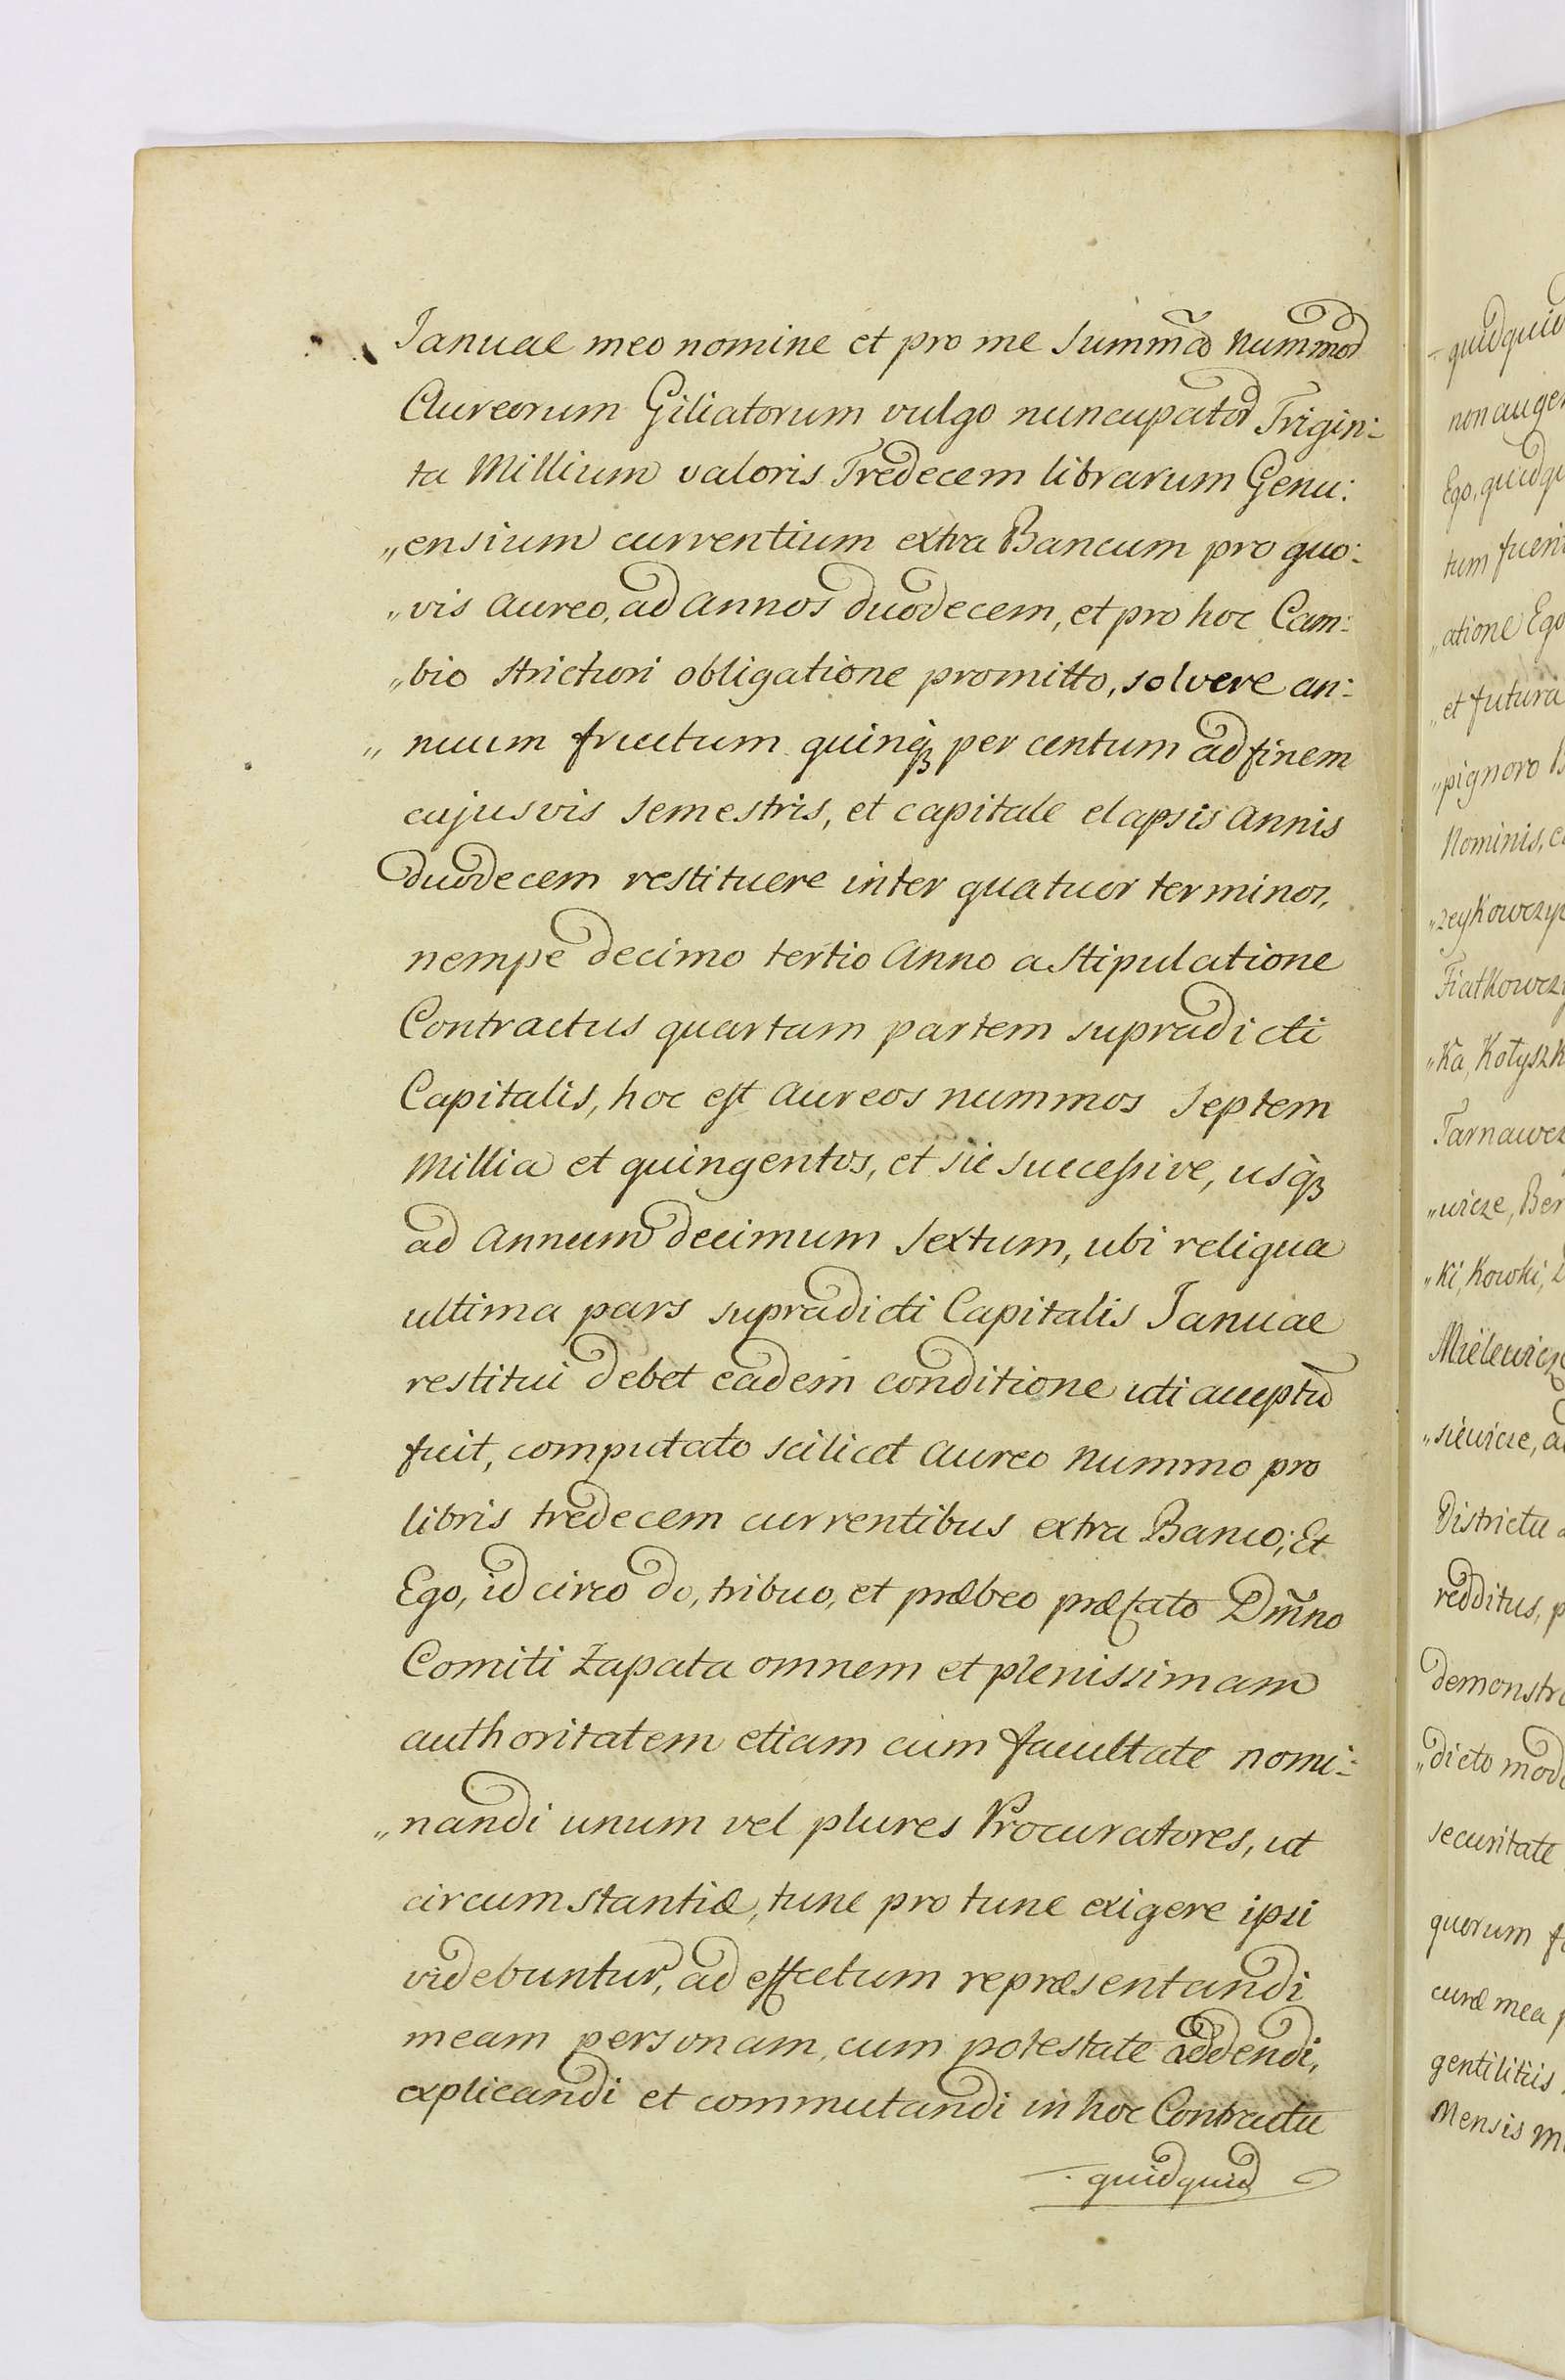 Januae meo nomine et pro me Summã Nummor
Aureorum Giliatorum vulgo nuncupator Trigin:
ta Millium valoris Tredecem librarum Genu:
„ensium currentium extra Bancum pro quo:
„vis aureo, ad annos duodecem, et pro hoc Cam:
„bio strictiori obligatione promitto, solvere an:
„nuum fructum quinqꝫ per centum ad finem
cujusvis semestris, et capitale elapsis annis
duodecem restituere inter quatuor terminos,
nempe decimo tertio Anno a Stipulatione
Contractus quartam partem supradicti
Capitalis, hoc est aureos nummos Septem
Millia et quingentos, et sic successive, usqꝫ
ad Annum decimum Sextum, ubi reliqua
ultima pars supradicti Capitalis Januae
restitui debet eadem conditione uti acceptũ
fuit, computato scilicet aureo nummo pro
libris tredecem currentibus extra Banco; Et
Ego, idcirco do, tribuo, et præbeo præfato Dm̃no
Comiti Zapata omnem et plenissimam
authoritatem etiam cum facultate nomi:
„nandi unum vel plures Procuratores, ut
circumstantiæ, tunc pro tunc exigere ipsi
videbuntur, ad effectum repræsentandi
meam personam, cum potestate addendi,
explicandi et commutandi in hoc Contractu
quidquid
quidquid
non auge
Ego, quidqu
tum fueri
„atione Ego
„et futura
„pignoro B
Nominis, c
„zeykowczyz
Fiatkowcz
„Ka, Kotyszk
Tarnawcz
„wicze, Ber
„Ki, Kowki,
Mielewicz
„siewicze, a
Districtu
redditus, p
demonstr
„dicto modo
securitate
quorum f
curæ mea p
gentilitiis
Mensis M